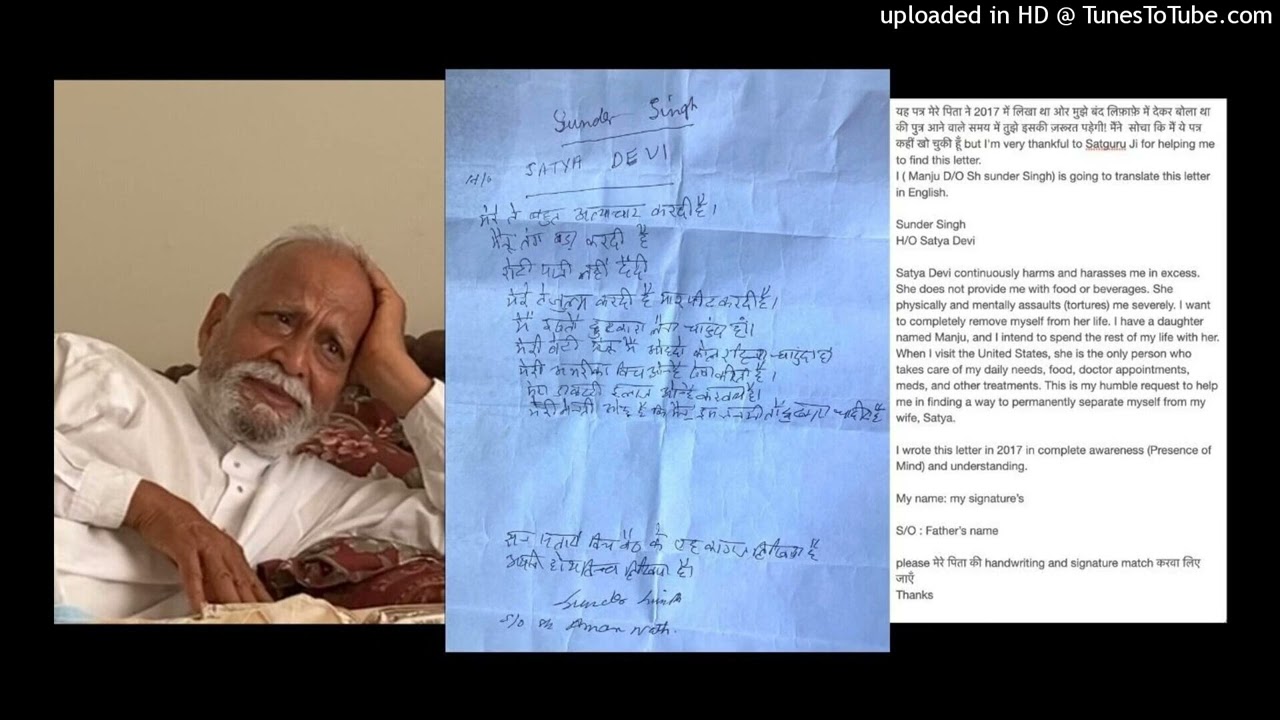 uploaded in HD @ TunesToTube.com
Sunder Singh
H/o SATYA DEVI
मेरे ते बहुत अत्याचार करदी है।
मैनू तंग बड़ा करदी है
रोटी पाणी नहीं देंदी
मेरे ते जुल्म करदी है मारपीट करदी है।
मैं इसतो छुटकारा लैना चाहंदा हाँ।
मेरी बेटी
मेरी अमरीका विच
इलाज
विच बैठ के एह कागज लिखिया है
लिखिया है।
Sunder Singh
S/o Sh Amar Nath.
यह पत्र मेरे पिता ने 2017 में लिखा था ओर मुझे बंद लिफ़ाफ़े में देकर बोला था
की पुत्र आने वाले समय में तुझे इसकी ज़रूरत पड़ेगी! मैंने सोचा कि मैं ये पत्र
कहीं खो चुकी हूँ but I'm very thankful to Satguru Ji for helping me
to find this letter.
I ( Manju D/O Sh sunder Singh) is going to translate this letter
in English.
Sunder Singh
H/O Satya Devi
Satya Devi continuously harms and harasses me in excess.
She does not provide me with food or beverages. She
physically and mentally assaults (tortures) me severely. I want
to completely remove myself from her life. I have a daughter
named Manju, and I intend to spend the rest of my life with her.
When I visit the United States, she is the only person who
takes care of my daily needs, food, doctor appointments,
meds, and other treatments. This is my humble request to help
me in finding a way to permanently separate myself from my
wife, Satya.
I wrote this letter in 2017 in complete awareness (Presence of
Mind) and understanding.
My name: my signature's
S/O : Father's name
please मेरे पिता की handwriting and signature match करवा लिए
जाएँ
Thanks